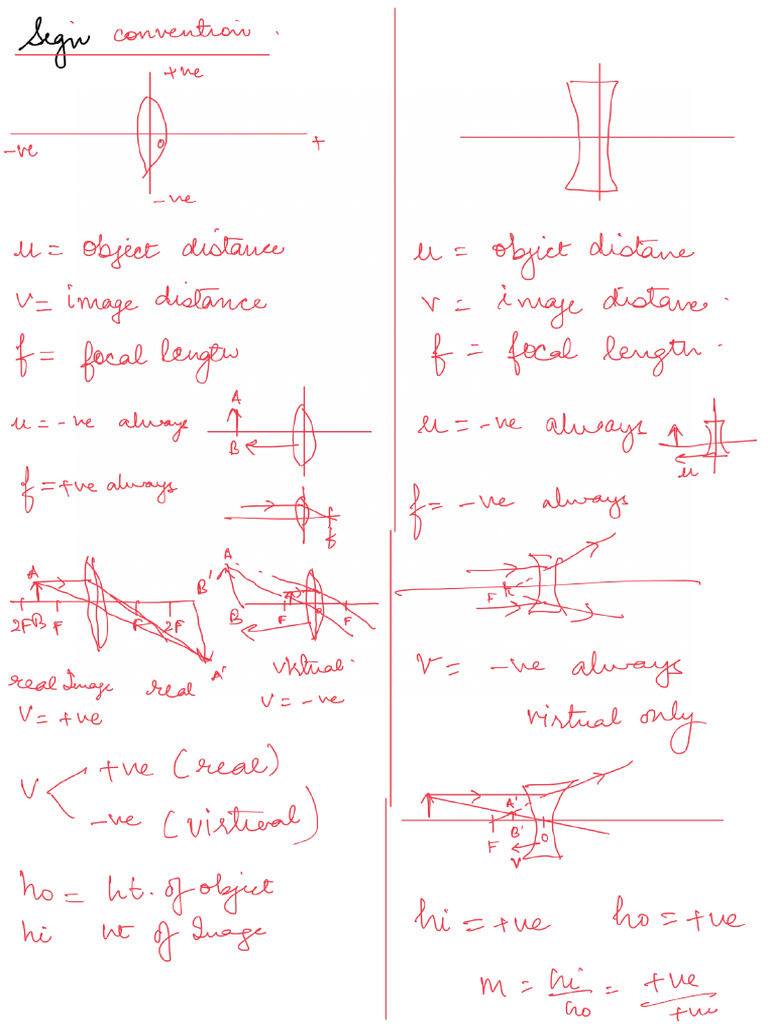 Sign convention.
+ve
-ve
O
+
-ve
u = object distance
v = image distance
f = focal length
u = -ve always
A
B
f = +ve always
f
A
2F B F
F 2F
B'
A'
A
B
F
O
F
real Image real
v = +ve
virtual.
v = -ve
v
+ve (real)
-ve (virtual)
ho = ht. of object
hi ht of Image
u = object distane
v = image distane.
f = focal length.
u = -ve always
u
f = -ve always
F
v = -ve always
virtual only
A'
F B' O
v
hi = +ve ho = +ve
m = hi/ho = +ve/+ve